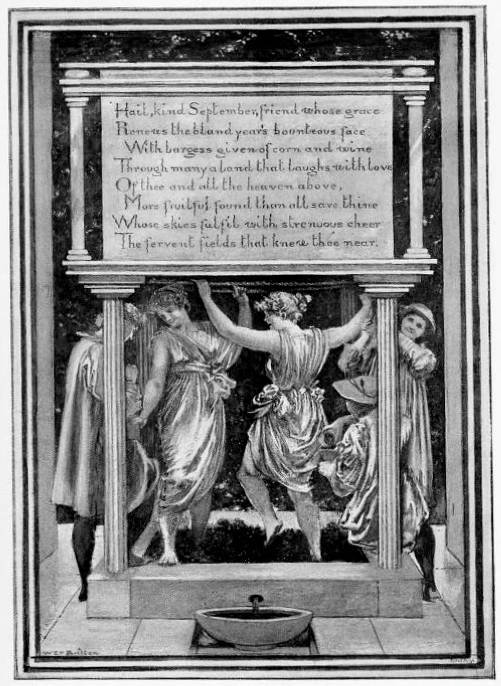 Hail, kind September, friend whose grace
Renews the bland year's bounteous face
With largess given of corn and wine
Through many a land that laughs with love
Of thee and all the heaven above,
More fruitful found than all save thine
Whose skies fulfil with strenuous cheer
The fervent fields that knew thee near.